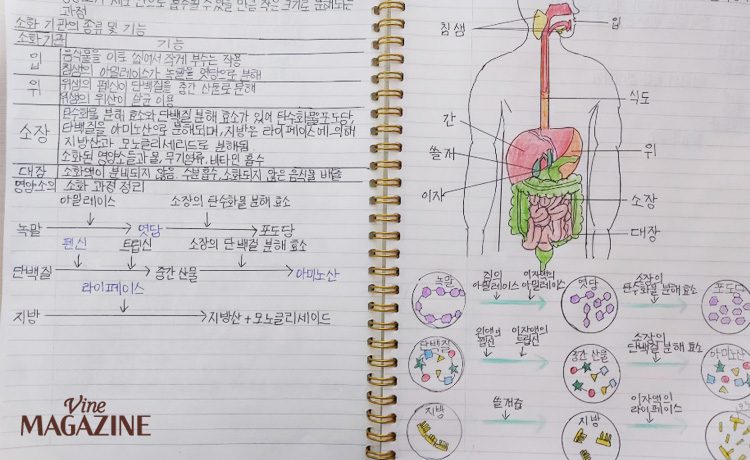 과정
소화 기관의 종류 및 기능
소화기관 기능
입 음식물을 이로 씹어서 작게 부수는 작용
침샘의 아밀레이스가 녹말을 엿당으로 분해
위 위샘의 펩신이 단백질을 중간 산물로 분해
위샘의 위산이 살균 이용
소장 탄수화물 분해 효소와 단백질 분해 효소가 있어 탄수화물을 포도당,
단백질을 아미노산으로 분해되며, 지방은 라이페이스에 의해
지방산과 모노글리세리드로 분해됨
소화된 영양소들과 물, 무기염류, 비타민 흡수
대장 소화액이 분비되지 않음. 수분흡수, 소화되지 않은 음식물 배출
영양소의 소화 과정 정리
아밀레이스 소장의 탄수화물 분해 효소
녹말 엿당 포도당
펩신 트립신 소장의 단백질 분해 효소
단백질 중간 산물 아미노산
라이페이스
지방 지방산+모노글리세이드
Vine
MAGAZINE
침샘 입
식도
간
쓸개 위
이자
소장
대장
녹말 침의 아밀레이스 이자액의 아밀레이스 엿당 소장의 탄수화물 분해 효소 포도당
단백질 위액의 펩신 이자액의 트립신 중간 산물 소장의 단백질 분해 효소 아미노산
지방 쓸개즙 지방 이자액의 라이페이스